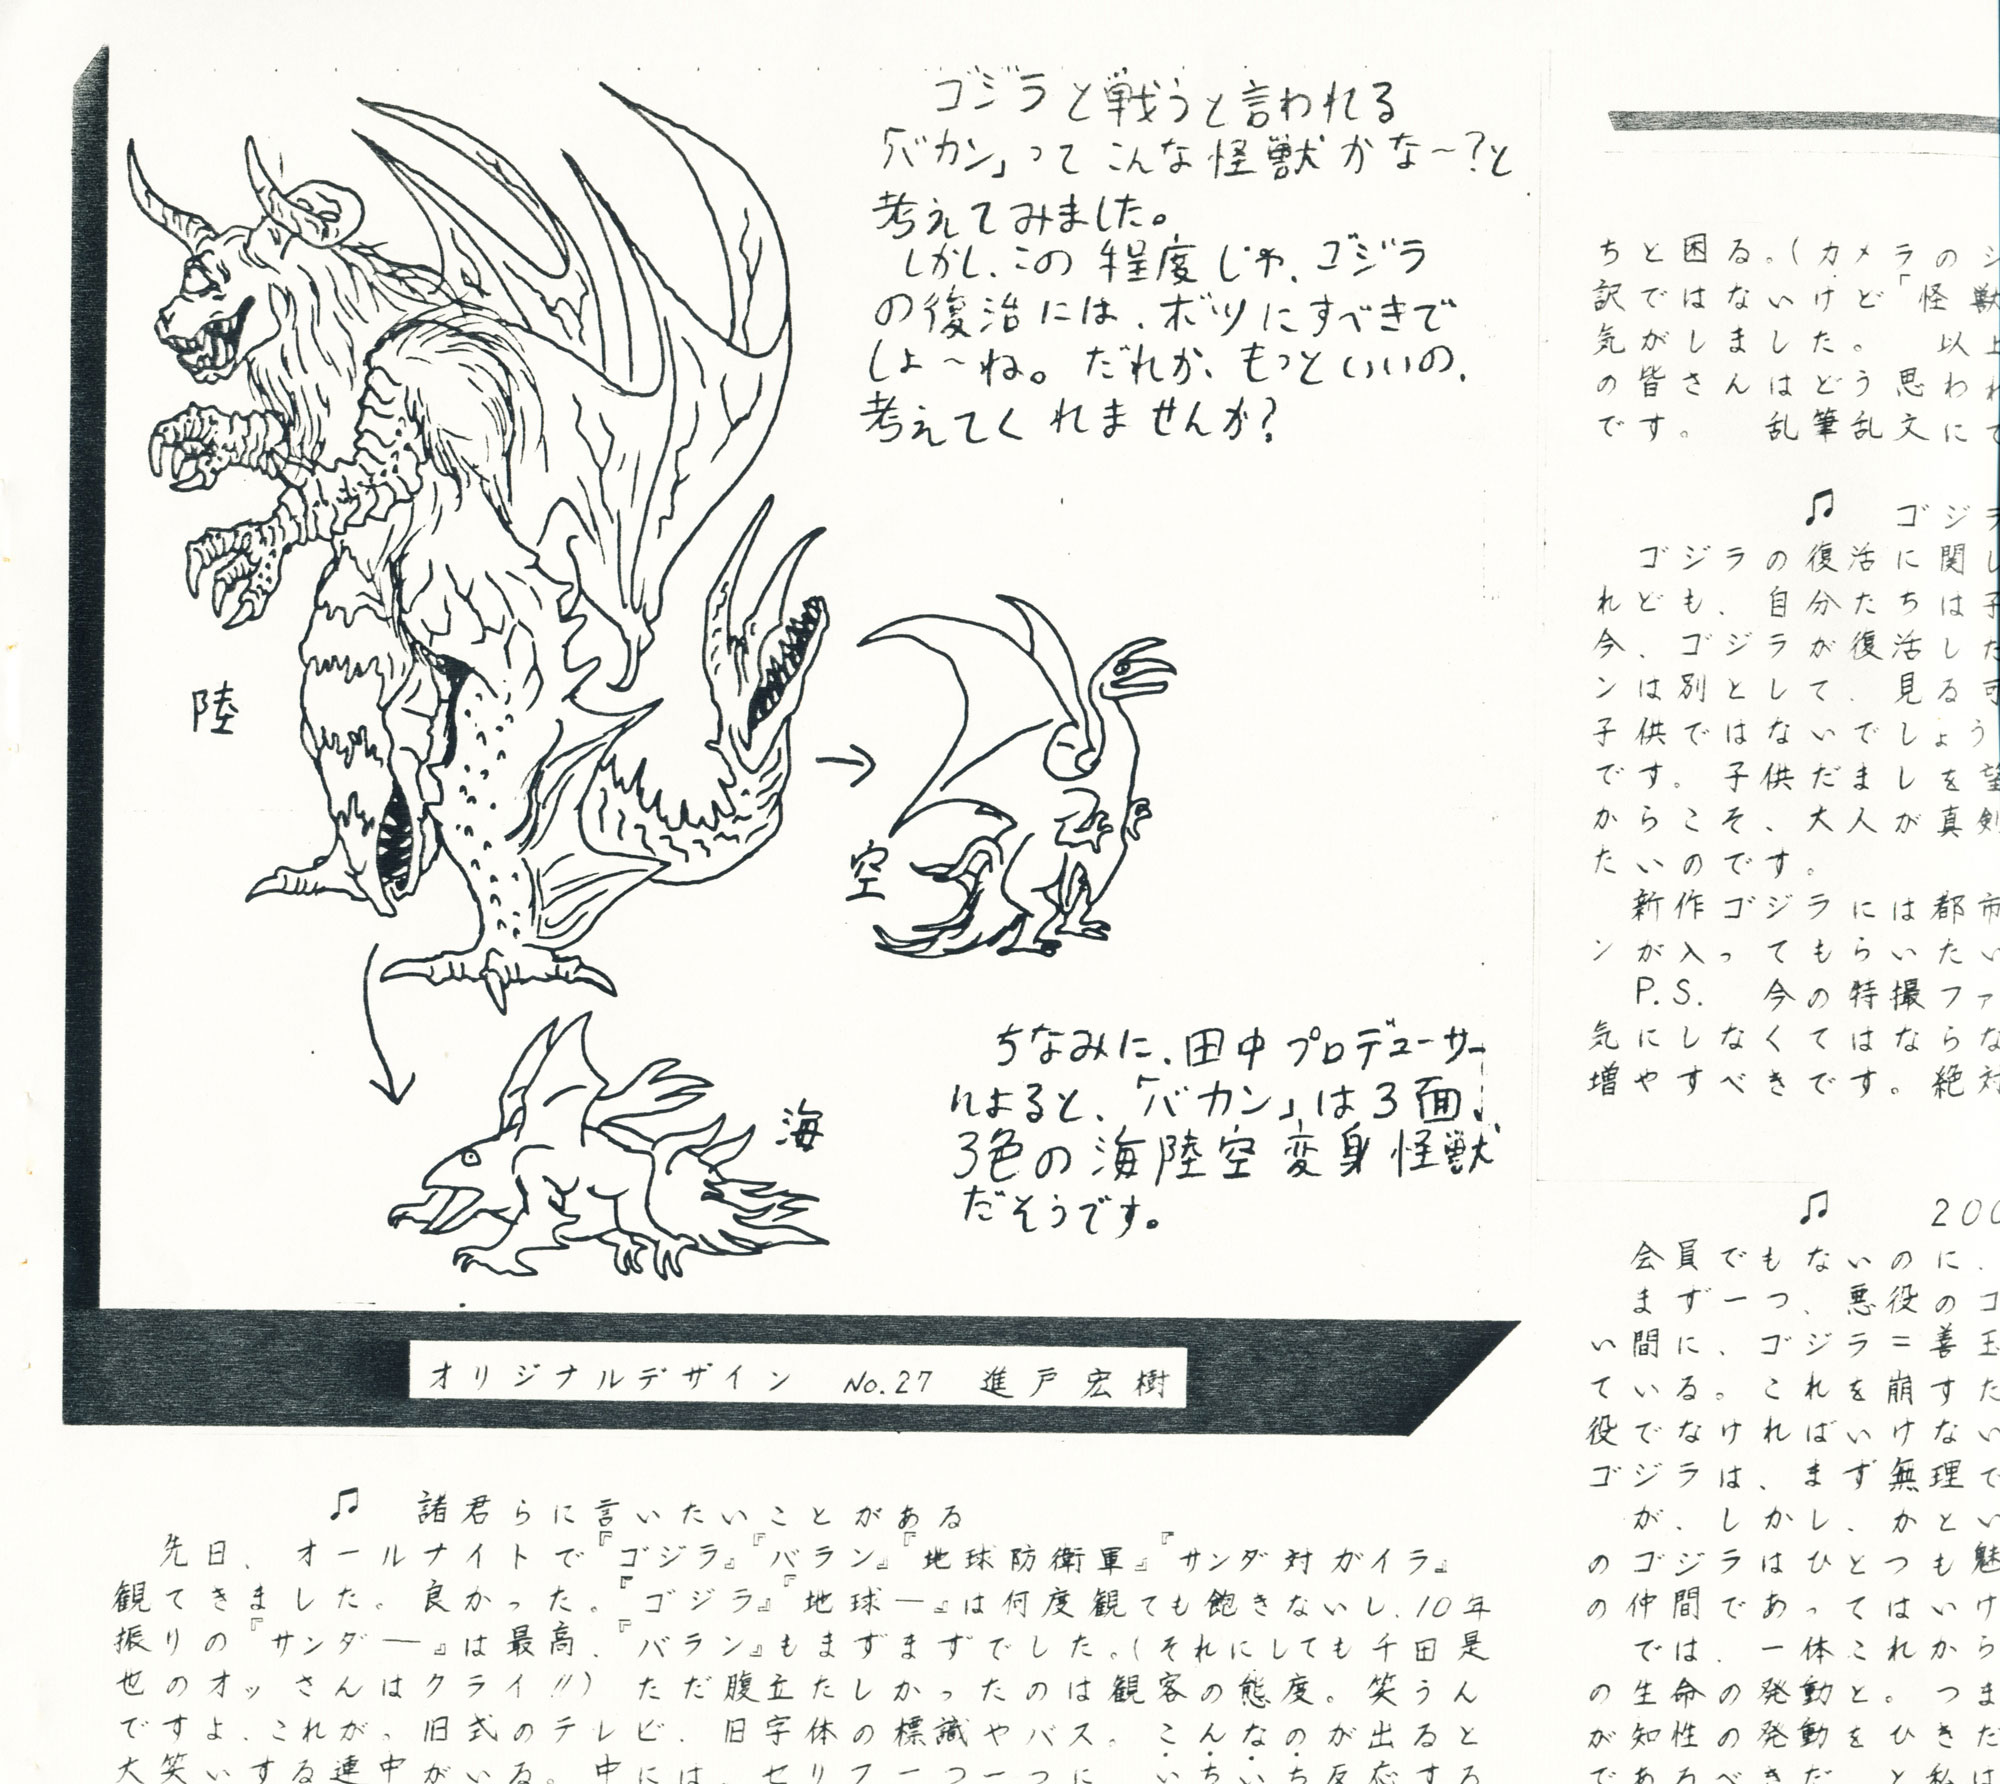 ゴジラと戦うと言われる
「バカン」ってこんな怪獣かな〜?と
考えてみました。
しかし、この程度じゃ、ゴジラ
の復治には、ボツにすべきで
しょ〜ね。だれか、もっといいの、
考えてくれませんか?
陸
→
空
海
ちなみに、田中プロデューサー
によると、「バカン」は3面、
3色の海陸空変身怪獣
だそうです。
オリジナルデザイン No.27 進戸宏樹
♫ 諸君らに言いたいことがある
先日、オールナイトで『ゴジラ』『バラン』『地球防衛軍』『サンダ対ガイラ』
観てきました。良かった。『ゴジラ』『地球―』は何度観ても飽きないし、10年
振りの『サンダ―』は最高、『バラン』もまずまずでした。(それにしても千田是
也のオッさんはクライ!!) ただ腹立たしかったのは観客の態度。笑うん
ですよ、これが。旧式のテレビ、旧字体の標識やバス。こんなのが出ると
大笑いする連中がいる。中には、セリフ一つ一つに、いちいち反応する
ちと困る。(カメラのシ
訳ではないけど「怪獣
気がしました。 以上
の皆さんはどう思わ
です。 乱筆乱文にて
♫ ゴジラ
ゴジラの復活に関し
れども、自分たちは子
今、ゴジラが復活した
ンは別として、見る可
子供ではないでしょう
です。子供だましを望
からこそ、大人が真剣
たいのです。
新作ゴジラには都市
ンが入ってもらいたい
P.S. 今の特撮ファ
気にしなくてはならな
増やすべきです。絶対
♫ 200
会員でもないのに、
まず一つ、悪役のゴ
い間に、ゴジラ=善玉
ている。これを崩すた
役でなければいけない
ゴジラは、まず無理で
が、しかし、かとい
のゴジラはひとつも魅
の仲間であってはいけ
では、一体これから
の生命の発動と。つま
が知性の発動をひきだ
であるべきだ、と私は